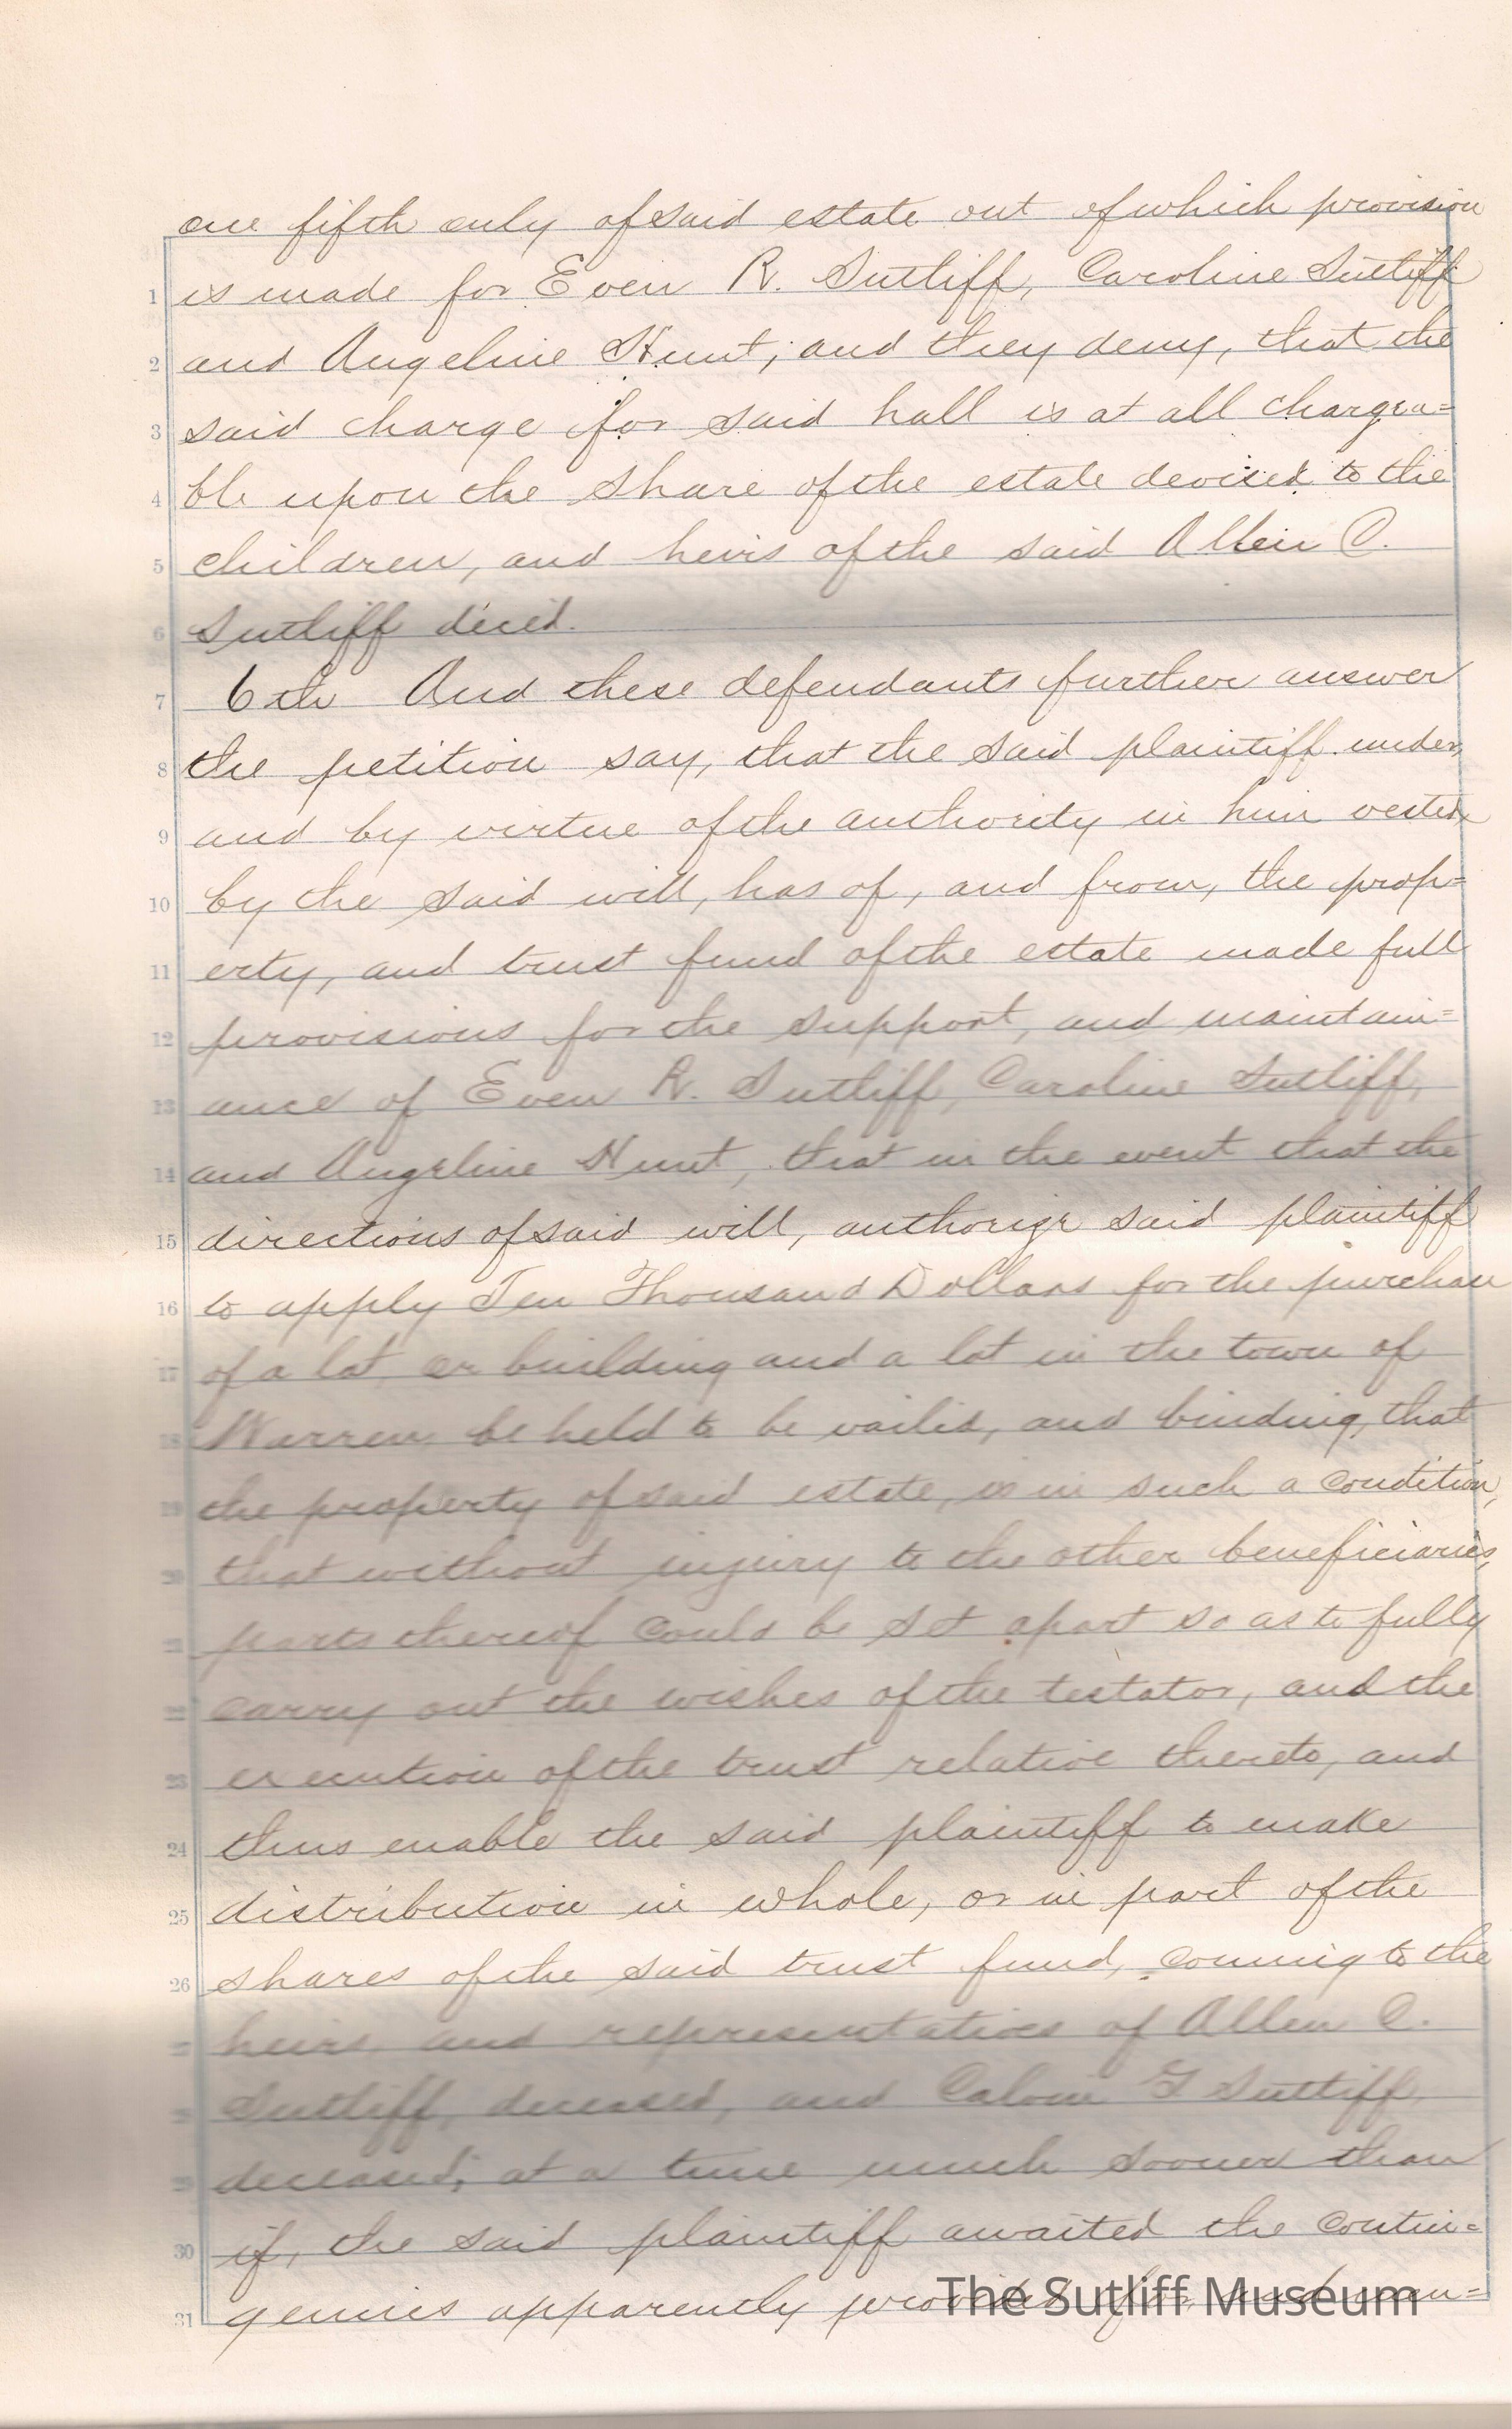 one fifth only of said estate out of which provision
1 is made for Even R. Sutliff, Caroline Sutliff
2 and Angeline Hunt; and they deny, that the
3 said charge for said hall is at all chargea=
4 ble upon the share of the estate devised to the
5 children, and heirs of the said Allen C.
6 Sutliff dec'd.
7 6th And these defendants further answer
8 the petition say, that the said plaintiff under,
9 and by virtue of the authority in him vested
10 by the said will, has of, and from, the prop=
11 erty, and trust fund of the estate made full
12 provisions for the support, and maintain=
13 ance of Even R. Sutliff, Caroline Sutliff,
14 and Angeline Hunt, that in the event that the
15 directions of said will, authorize said plaintiff
16 to apply Ten Thousand Dollars for the purchase
17 of a lot or building and a lot in the town of
18 Warren be held to be vailid, and binding, that
19 the property of said estate, is in such a condition,
20 that without injury to the other beneficiaries,
21 parts thereof could be set apart so as to fully
22 carry out the wishes of the testator, and the
23 execution of the trust relative thereto, and
24 thus enable the said plaintiff to make
25 distribution in whole, or in part of the
26 shares of the said trust fund, coming to the
heirs and representatives of Allen C.
Sutliff, deceased, and Calvin G Sutliff,
29 deceased; at a time much sooner than
30 if, the said plaintiff awaited the contin=
31 gencies apparently provided for
The Sutliff Museum